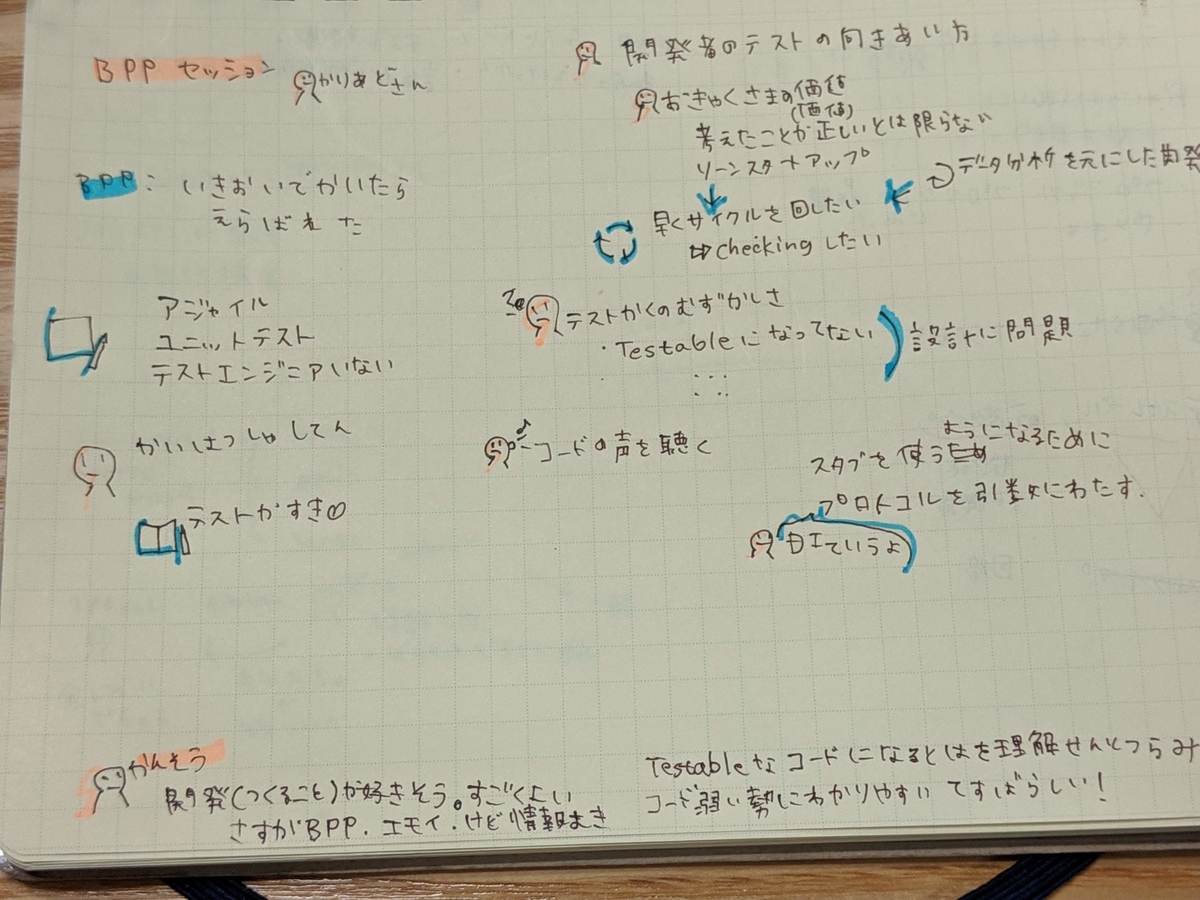 BPP セッション
かりあどさん
BPP: いきおいでかいたら
えらばれた
アジャイル
ユニットテスト
テストエンジニアいない
かいはつしゃしてん
テストがすき
開発者のテストの向きあい方
おきゃくさまの価値
(価値)
考えたことが正しいとは限らない
リーンスタートアップ
データ分析を元にした開発
早くサイクルを回したい
⇨ checking したい
テストかくのむずかしさ
・Testableになってない
設計に問題
コードの声を聴く
ようになるために
スタブを使う
プロトコルを引数にわたす.
DIていうよ
かんそう
開発(つくること)が好きそう。すごくよい
さすがBPP. エモイ. けど情報
Testableなコードになるとはを理解せんとつらみ
コード弱い勢にわかりやすい てすばらしい!